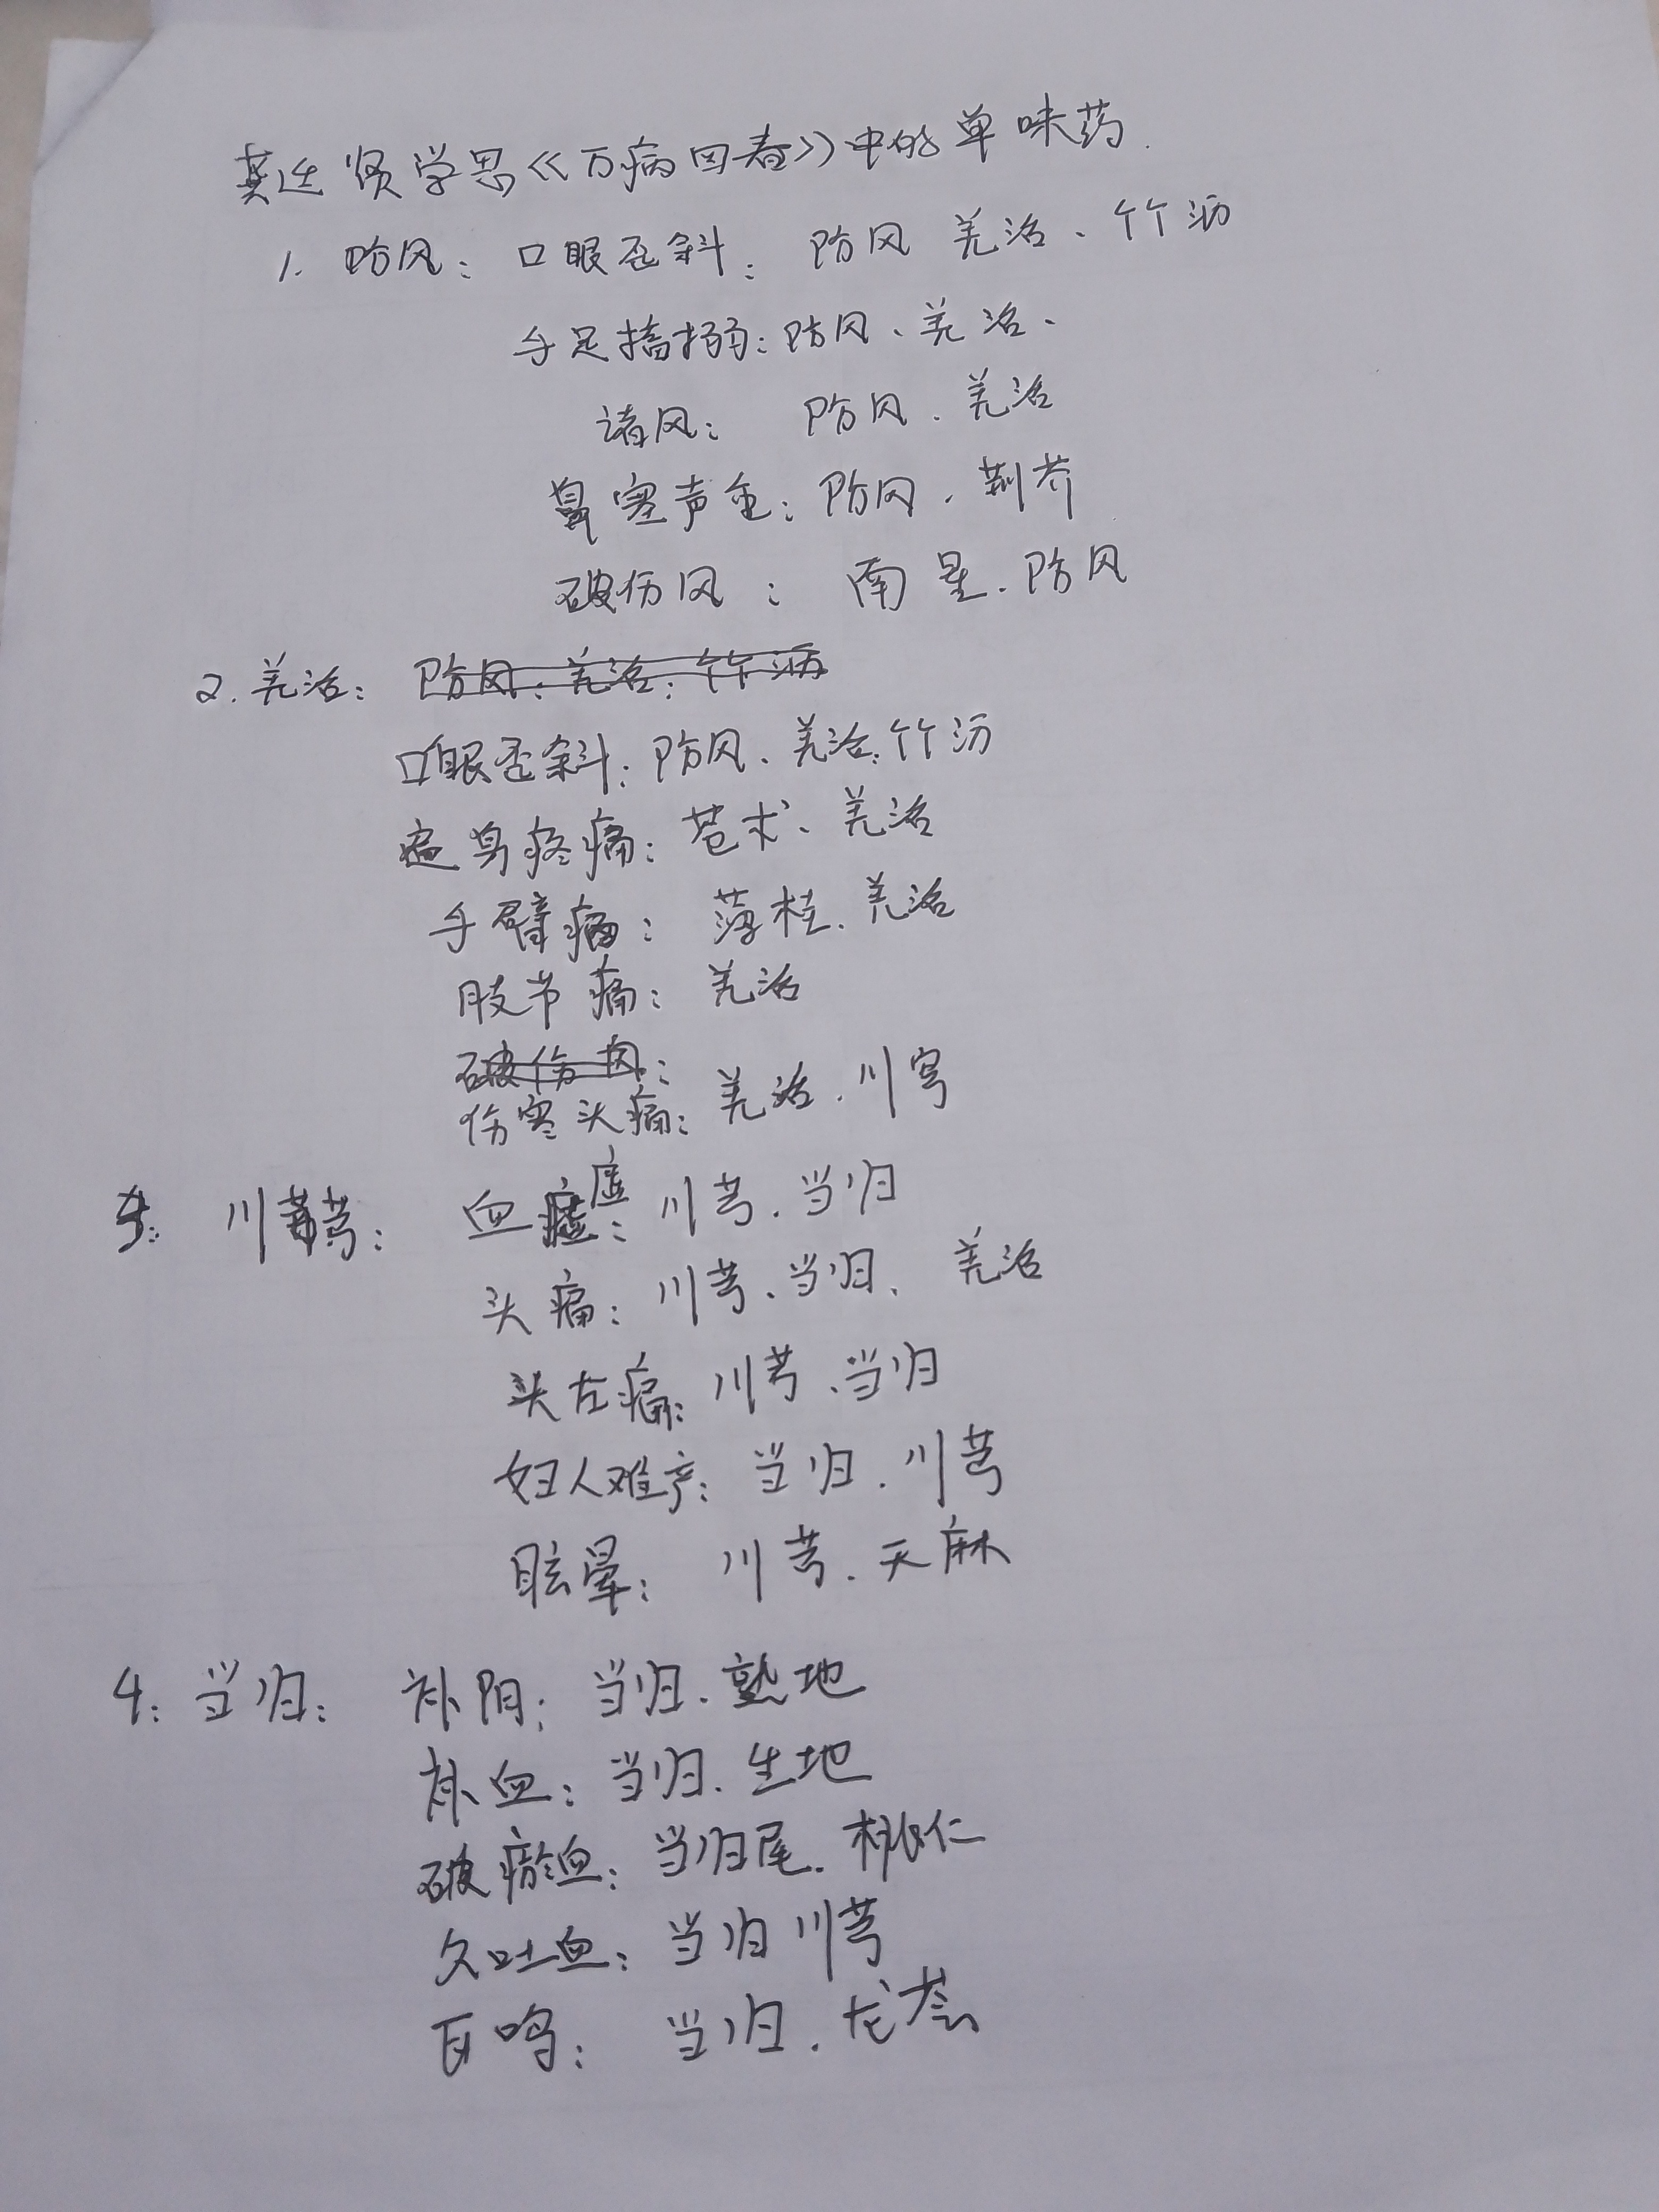 龚廷贤学思《万病回春》中的单味药.
1. 防风: 口眼歪斜: 防风 羌活、竹沥
手足搐搦: 防风、羌活、
诸风: 防风. 羌活
鼻塞声重: 防风. 荆芥
破伤风: 南星. 防风
2. 羌活: 防风. 羌活. 竹沥
口眼歪斜: 防风、羌活. 竹沥
遍身疼痛: 苍术、羌活
手臂痛: 薄桂. 羌活
肢节痛: 羌活
破伤风:
伤寒头痛: 羌活. 川芎
3: 川芎: 血虚: 川芎. 当归
头痛: 川芎、当归、羌活
头左痛: 川芎、当归
妇人难产: 当归. 川芎
眩晕: 川芎. 天麻
4: 当归: 补阴: 当归. 熟地
补血: 当归. 生地
破瘀血: 当归尾. 桃仁
久吐血: 当归 川芎
耳鸣: 当归. 龙荟